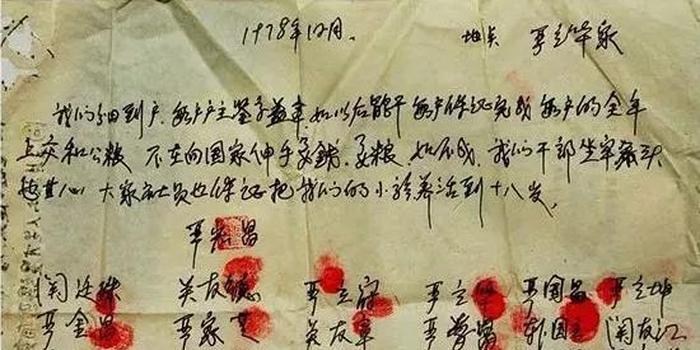 1978年12月. 地点 严立华家
我们分田到户.每户户主签字盖章.如以后能干每户保证完成每户的全年
上交和公粮 不在向国家伸手要钱.要粮.如不成.我们干部坐牢杀头
也甘心 大家社员也保证把我们的小孩养活到十八岁.
严宏昌
关廷珠 关友德 严立富 严立华 严国昌 严立坤
严金昌 严家芝 关友章 严学昌 韩国云 关友江